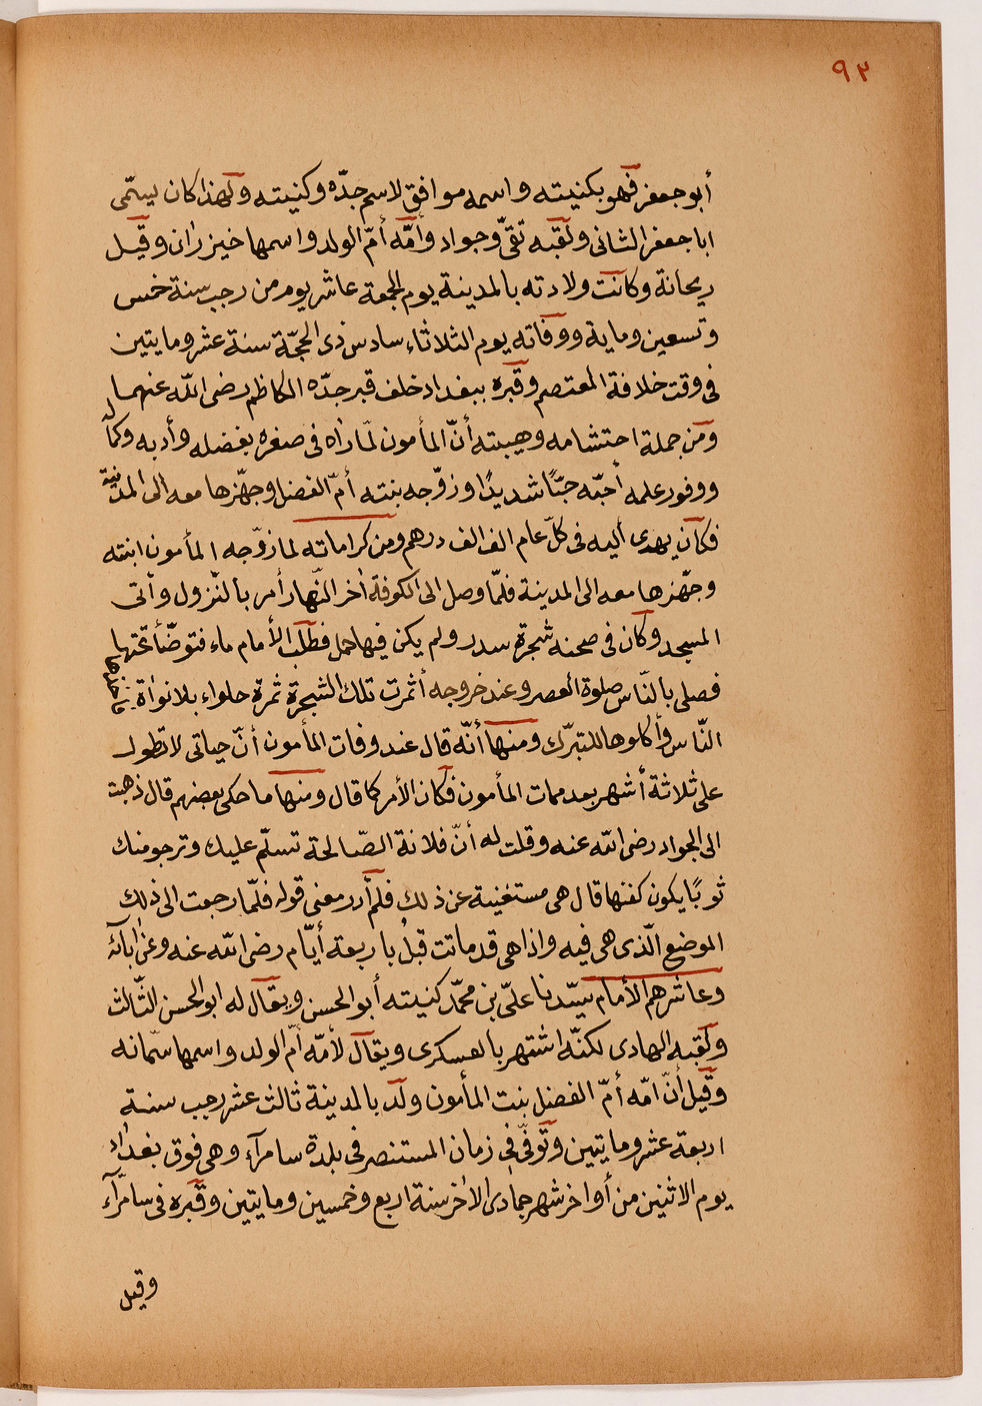 ٩٢
أبو جعفر فهو بكنيته واسمه موافق لاسم جدّه وكنيته ولهذا كان يسمّى
ابا جعفر الثانى ولقبه تقىّ وجواد وأمّه أمّ الولد واسمها خيزران وقيل
ريحانة وكانت ولادته بالمدينة يوم الجمعة عاشر يوم من رجب سنة خمس
وتسعين وماية ووفاته يوم الثلاثاء سادس ذى الحجّة سنة عشر ومايتين
فى وقت خلافة المعتصم وقبره ببغداد خلف قبر جدّه الكاظم رضى الله عنهما
ومن جملة احتشامه وهيبته أنّ المأمون لمّا رٰاه فى صغره بفضله وأدبه وكماله
ووفور علمه أحبّه حبًّا شديدًا وزوّجه بنته أمّ الفضل وجهّزها معه الى المدينة
فكان يهدى أليه فى كلّ عام الف الف درهم ومن كراماته لما زوّجه المأمون ابنته
وجهّزها معه الى المدينة فلمّا وصل الى الكوفة أخر النّهار أمر بالنّزول وأتى
المسجد وكان فى صحنه شجرة سدر ولم يكن فيها حمل فطلب الأمام ماء فتوضّأ تحتها
فصلى بالنّاس صلوة العصر وعند خروجه أثمرت تلك الشّجرة ثمرة حلواء بلا نواة
النّاس وأكلوها للتبرّك ومنها أنّه قال عند وفات المأمون أنّ حياتى لا تطول
على ثلاثة أشهر بعد ممات المأمون فكان الأمر كما قال ومنها ما حكى بعضهم قال ذهبت
الى الجواد رضى الله عنه وقلت له أنّ فلانة الصّالحة تسلّم عليك وترجو منك
ثوبًا يكون كفنها قال هى مستغنية عن ذلك فلم أدر معنى قوله فلمّا رجعت الى ذلك
الموضع الّذى هى فيه واذا هى قد ماتت قبل باربعة أيّام رضى الله عنه وعن اٰبآئه
وعاشرهم الأمام سيّدنا علىّ بن محمّد كنيته أبو الحسن ويقال له ابو الحسن الثّالث
ولقبه الهادى لكنّه اشتهر بالعسكرى ويقال لأمّه أمّ الولد واسمها سمّانه
وقيل أنّ امّه أمّ الفضل بنت المأمون ولد بالمدينة ثالث عشر رجب سنة
اربعة عشر ومايتين وتوفّى فى زمان المستنصر فى بلدة سامرآء وهى فوق بغداد
يوم الاثنين من أواخر شهر جمادى الاٰخر سنة اربع وخمسين ومايتين وقبره فى سامرّآء
وقيل